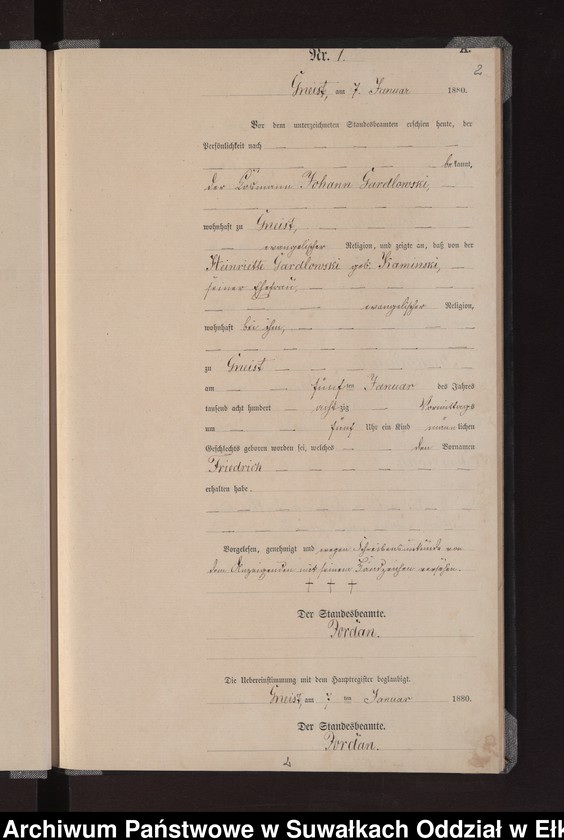 A.
Nr. 1.
2
Gneist, am 7. Januar 1880.
Vor dem unterzeichneten Standesbeamten erschien heute, der
Persönlichkeit nach
bekannt,
der Losmann Johann Gardlowski,
wohnhaft zu Gneist,
evangelischer Religion, und zeigte an, daß von der
Heinriette Gardlowski geb. Kaminski,
seiner Ehefrau,
evangelischer Religion,
wohnhaft bei ihm,
zu Gneist
am fünften Januar des Jahres
tausend acht hundert achtzig Vormittags
um fünf Uhr ein Kind männlichen
Geschlechts geboren worden sei, welches den Vornamen
Friedrich
erhalten habe.
Vorgelesen, genehmigt und wegen Schreibensunkunde von
dem Anzeigenden mit seinem Handzeichen versehen.
† † †
Der Standesbeamte.
Jordan.
Die Uebereinstimmung mit dem Hauptregister beglaubigt.
Gneist, am 7ten Januar 1880.
Der Standesbeamte.
Jordan.
Archiwum Państwowe w Suwałkach Oddział w Ełk